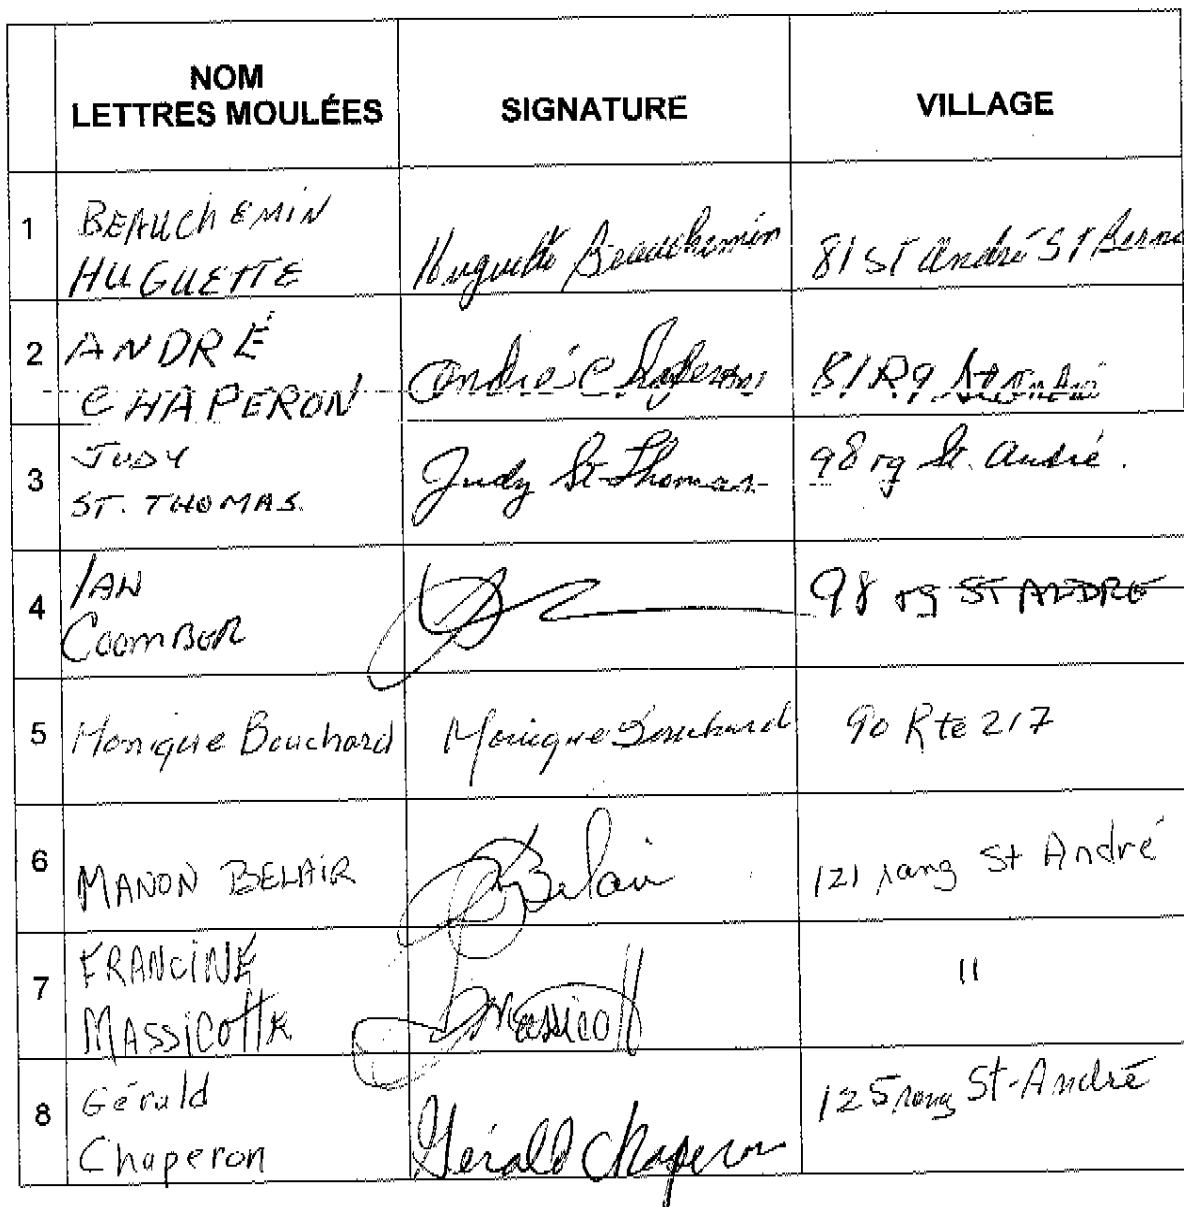 NOM
LETTRES MOULÉES
SIGNATURE
VILLAGE
1
BEAUCHEMIN
HUGUETTE
Huguette Beauchemin
81 ST André St Berna
2
ANDRÉ
CHAPERON
André Chaperon
81 Rg St André
3
JUDY
ST. THOMAS.
Judy St-Thomas
98 rg St. André.
4
IAN
COOMBER
98 rg ST ANDRE
5
Monique Bouchard
Monique Bouchard
90 Rte 217
6
MANON BELAIR
Belair
121 rang St André
7
FRANCINE
MASSICOTTE
Massicott
"
8
Gérald
Chaperon
Gérald Chaperon
125 rang St-André